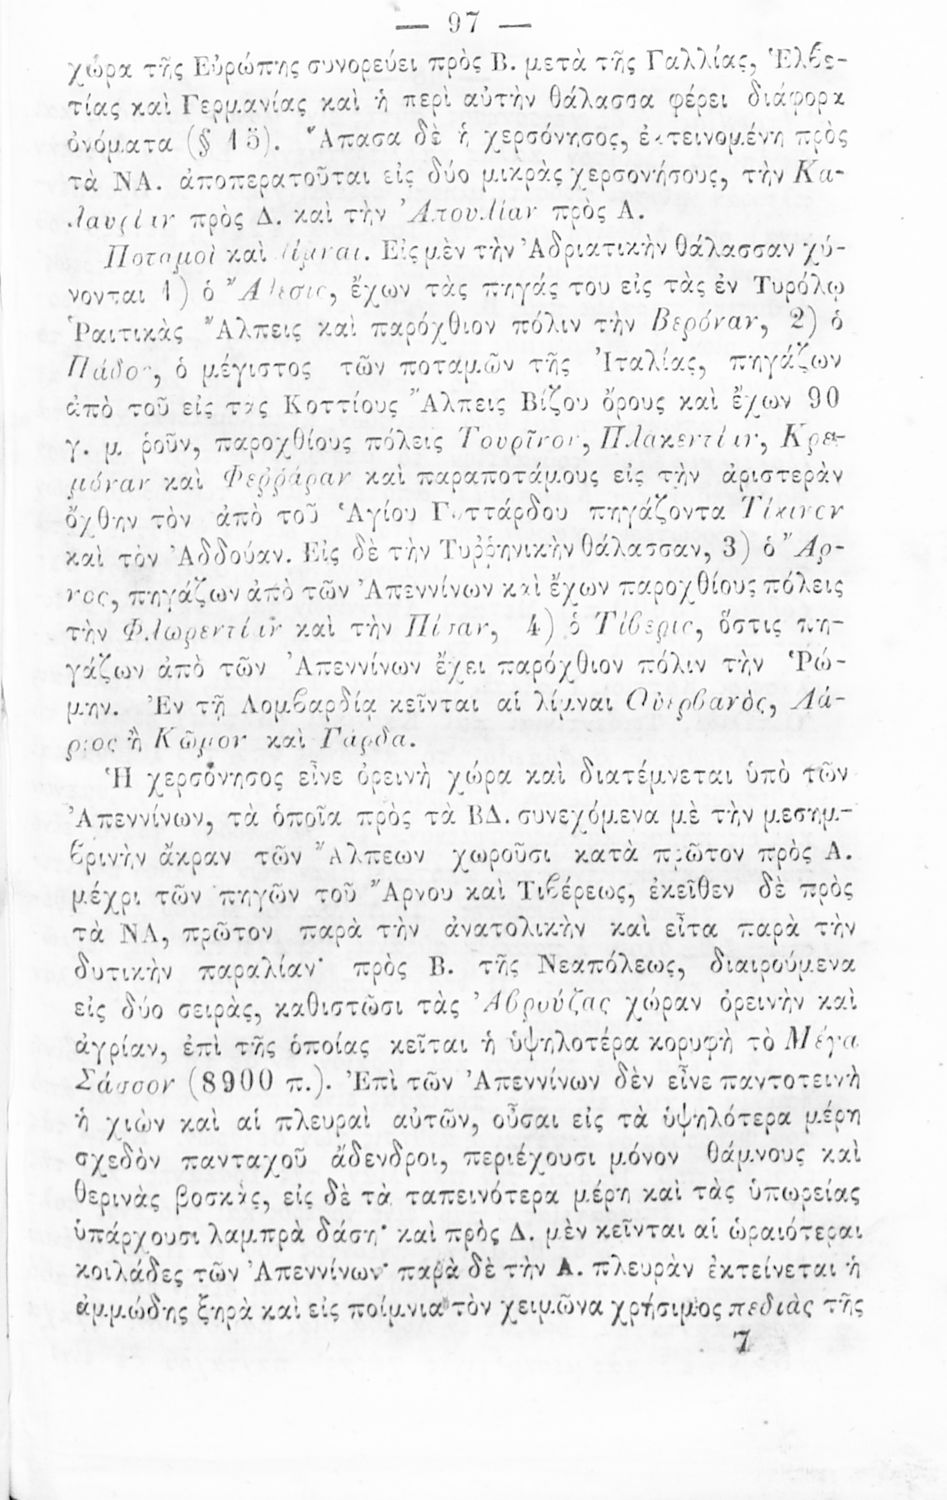 — 97 —
χώρα τῆς Εὐρώπης συνορεύει πρὸς Β. μετὰ τῆς Γαλλίας, Ἑλβε-
τίας καὶ Γερμανίας καὶ ἡ περὶ αὐτὴν θάλασσα φέρει διάφορα
ὀνόματα (§ 15). Ἅπασα δὲ ἡ χερσόνησος, ἐκτεινομένη πρὸς
τὰ ΝΑ. ἀποπερατοῦται εἰς δύο μικρὰς χερσονήσους, τὴν Κα-
λαυρίαν πρὸς Δ. καὶ τὴν Ἀπουλίαν πρὸς Α.
Ποταμοὶ καὶ λίμναι. Εἰς μὲν τὴν Ἀδριατικὴν θάλασσαν χύ-
νονται 1) ὁ Ἄθεσις, ἔχων τὰς πηγάς του εἰς τὰς ἐν Τυρόλῳ
Ῥαιτικὰς Ἄλπεις καὶ παρόχθιον πόλιν τὴν Βερόναν, 2) ὁ
Πάδος, ὁ μέγιστος τῶν ποταμῶν τῆς Ἰταλίας, πηγάζων
ἀπὸ τοῦ εἰς τὰς Κοττίους Ἄλπεις Βίζου ὄρους καὶ ἔχων 90
γ. μ. ῥοῦν, παροχθίους πόλεις Τουρῖνον, Πλακεντίαν, Κρε-
μόναν καὶ Φεῤῥάραν καὶ παραποτάμους εἰς τὴν ἀριστερὰν
ὄχθην τὸν ἀπὸ τοῦ Ἁγίου Γοττάρδου πηγάζοντα Τίκινον
καὶ τὸν Ἀδδούαν. Εἰς δὲ τὴν Τυῤῥηνικὴν θάλασσαν, 3) ὁ Ἄρ-
νος, πηγάζων ἀπὸ τῶν Ἀπεννίνων καὶ ἔχων παροχθίους πόλεις
τὴν Φλωρεντίαν καὶ τὴν Πίσαν, 4) ὁ Τίβερις, ὅστις πη-
γάζων ἀπὸ τῶν Ἀπεννίνων ἔχει παρόχθιον πόλιν τὴν Ῥώ-
μην. Ἐν τῇ Λομβαρδίᾳ κεῖνται αἱ λίμναι Οὐερβανὸς, Λά-
ριος ἢ Κῶμον καὶ Γάρδα.
Ἡ χερσόνησος εἶνε ὀρεινὴ χώρα καὶ διατέμνεται ὑπὸ τῶν
Ἀπεννίνων, τὰ ὁποῖα πρὸς τὰ ΒΔ. συνεχόμενα μὲ τὴν μεσημ-
βρινὴν ἄκραν τῶν Ἄλπεων χωροῦσι κατὰ πρῶτον πρὸς Α.
μέχρι τῶν πηγῶν τοῦ Ἄρνου καὶ Τιβέρεως, ἐκεῖθεν δὲ πρὸς
τὰ ΝΑ, πρῶτον παρὰ τὴν ἀνατολικὴν καὶ εἶτα παρὰ τὴν
δυτικὴν παραλίαν· πρὸς Β. τῆς Νεαπόλεως, διαιρούμενα
εἰς δύο σειρὰς, καθιστῶσι τὰς Ἀβρούζας χώραν ὀρεινὴν καὶ
ἀγρίαν, ἐπὶ τῆς ὁποίας κεῖται ἡ ὑψηλοτέρα κορυφὴ τὸ Μέγα
Σάσσον (8900 π.). Ἐπὶ τῶν Ἀπεννίνων δὲν εἶνε παντοτεινὴ
ἡ χιὼν καὶ αἱ πλευραὶ αὐτῶν, οὖσαι εἰς τὰ ὑψηλότερα μέρη
σχεδὸν πανταχοῦ ἄδενδροι, περιέχουσι μόνον θάμνους καὶ
θερινὰς βοσκὰς, εἰς δὲ τὰ ταπεινότερα μέρη καὶ τὰς ὑπωρείας
ὑπάρχουσι λαμπρὰ δάση· καὶ πρὸς Δ. μὲν κεῖνται αἱ ὡραιότεραι
κοιλάδες τῶν Ἀπεννίνων· παρὰ δὲ τὴν Α. πλευρὰν ἐκτείνεται ἡ
ἀμμώδης ξηρὰ καὶ εἰς ποίμνια τὸν χειμῶνα χρήσιμος πεδιὰς τῆς
7